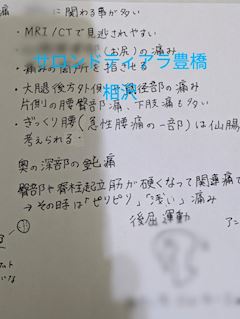 痛 に関わる事が多い
・MRI/CTで見逃されやすい
(お尻)の痛み
サロンドティアラ豊橋
・痛みの箇所を指させる
相沢
・大腿後方外側 径部の痛み
片側の腰臀部痛、下肢痛も多い
・ぎっくり腰(急性腰痛の一部)は仙腸
考えられる.
奥の深部の鈍痛
臀部や脊柱起立筋が硬くなって関連痛で
→その時は「ピリピリ」「浅い」痛み
後屈運動
アン